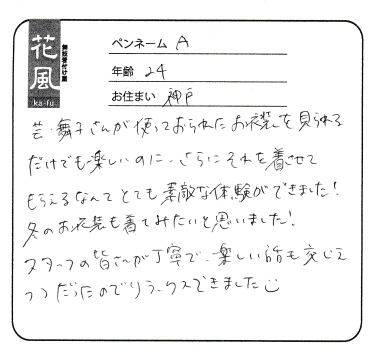 花風
舞妓着付け屋
ka-fu
ペンネーム A
年齢 24
お住まい 神戸
芸・舞子さんが使っておられたお衣裳を見られる
だけでも楽しいのに、さらにそれを着させて
もらえるなんてとても素敵な体験ができました!
冬のお衣裳も着てみたいと思いました!
スタッフの皆さんが丁寧で、楽しい話も交じえ
つつだったのでリラックスできました